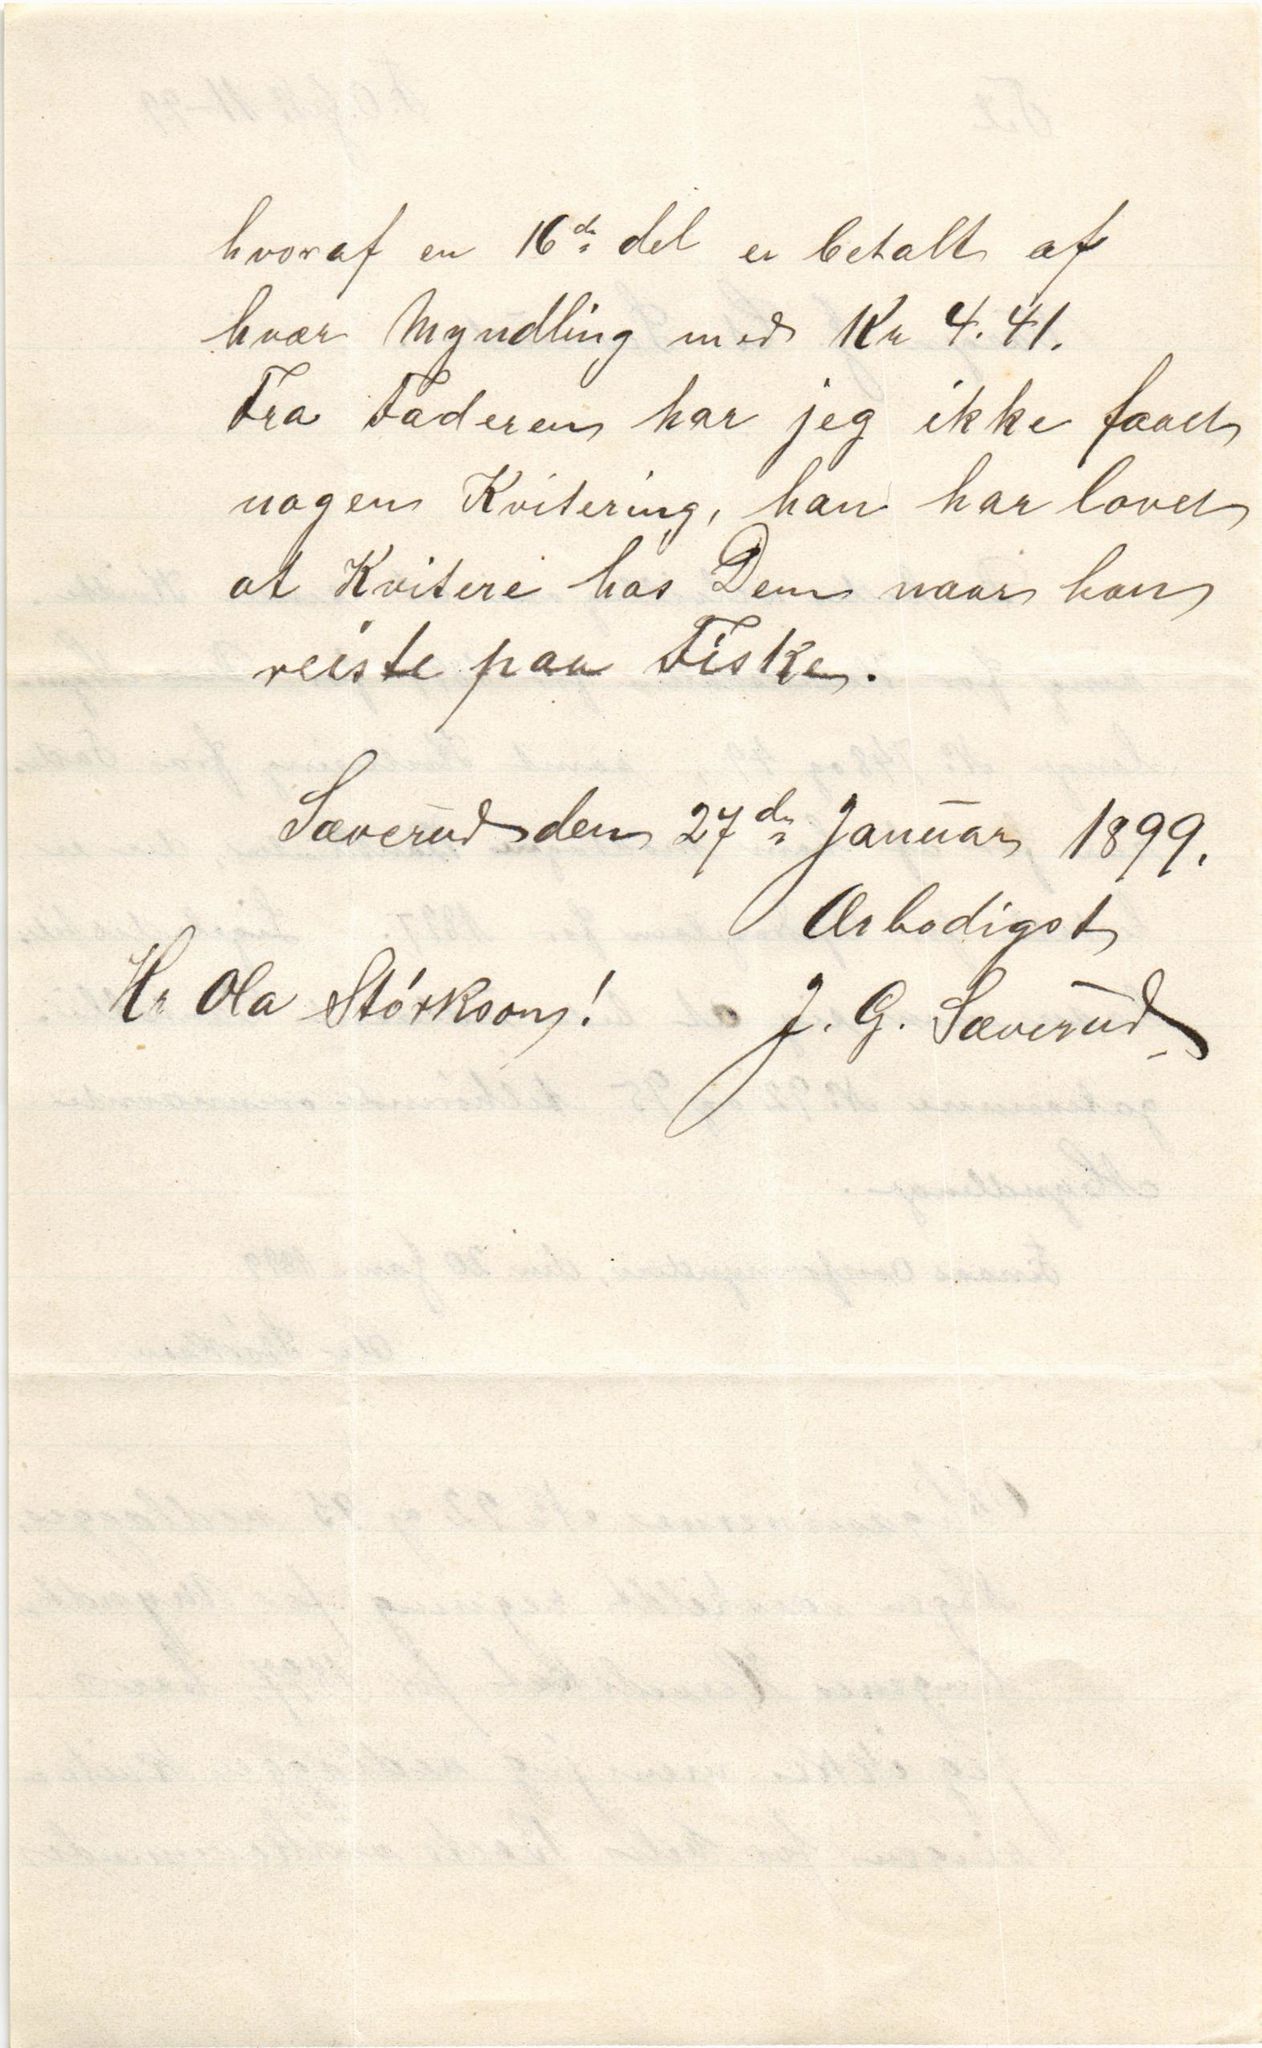 hvoraf en 16de del er betalt af
hvær Myndling med Kr 4.41.
Fra Faderen har jeg ikke faaet
nogen Kvitering, han har lovet
at Kvitere hos Dem naar han
reiste paa Fiske.
Sæverud den 27de Januar 1899.
Ærbødigst
Hr Ola Störksøn! J. G. Sæverud